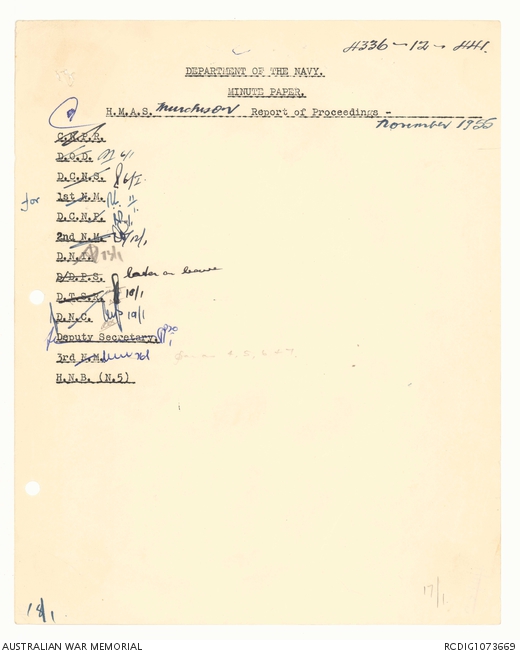 4336-12-441.
DEPARTMENT OF THE NAVY.
MINUTE PAPER.
H.M.A.S. Murchison Report of Proceedings -
November 1955
C.R.P.R.
D.O.D. 6/1
D.C.N.S. 6/1
for 1st N.M. 11/1
D.C.N.P.
2nd N.M. 12/1
D.N.I. 13/1
D/D.P.S. Later on leave
D.T.S.R. 18/1
D.N.C. 19/1
Deputy Secretary.
3rd N.M.
H.N.B. (N.5)
17/1
18/1
AUSTRALIAN WAR MEMORIAL
RCDIG1073669